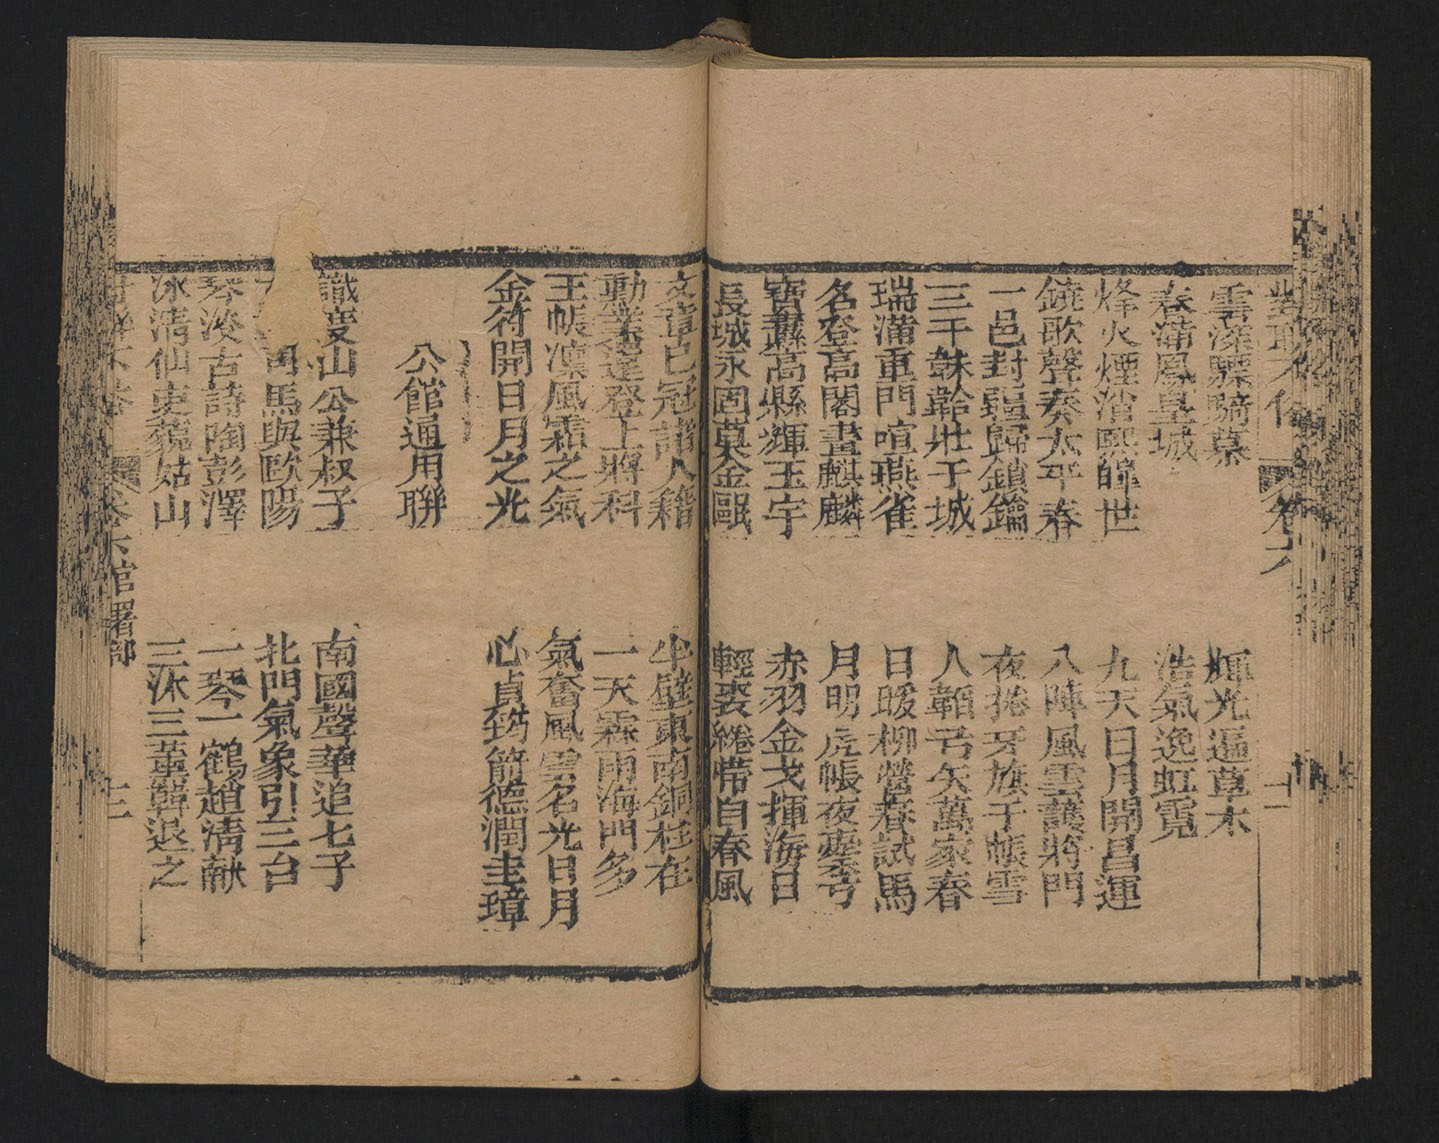 卷六
雲深驃騎幕
輝光遍草木
春滿鳳皇城
浩氣逸虹霓
烽火煙消熙皥世
九天日月開昌運
鐃歌聲奏太平春
八陣風雲護將門
一邑封疆歸鎖鑰
夜捲牙旗千帳雪
三千韎韐壯干城
人韜弓矢萬家春
瑞滿重門喧燕雀
日暖柳營春試馬
名登高閣畫麒麟
月明虎帳夜
赤羽金戈揮海日
高縣輝玉宇
長城永固莫金甌
輕裘綣帶自春風
已冠諸人籍
半壁東南銅柱在
勳業蓬登上將科
一天霖雨海門多
王帳凛風霜之氣
氣奮風雲名光日月
金符開日月之光
心貞筠箭德潤圭璋
公館通用聯
識度山公兼叔子
南國聲華追七子
司馬與歐陽
北門氣象引三台
琴淡古詩陶彭澤
一琴一鶴趙清献
冰清仙吏藐姑山
三泳三董韓退之
卷六 官署部